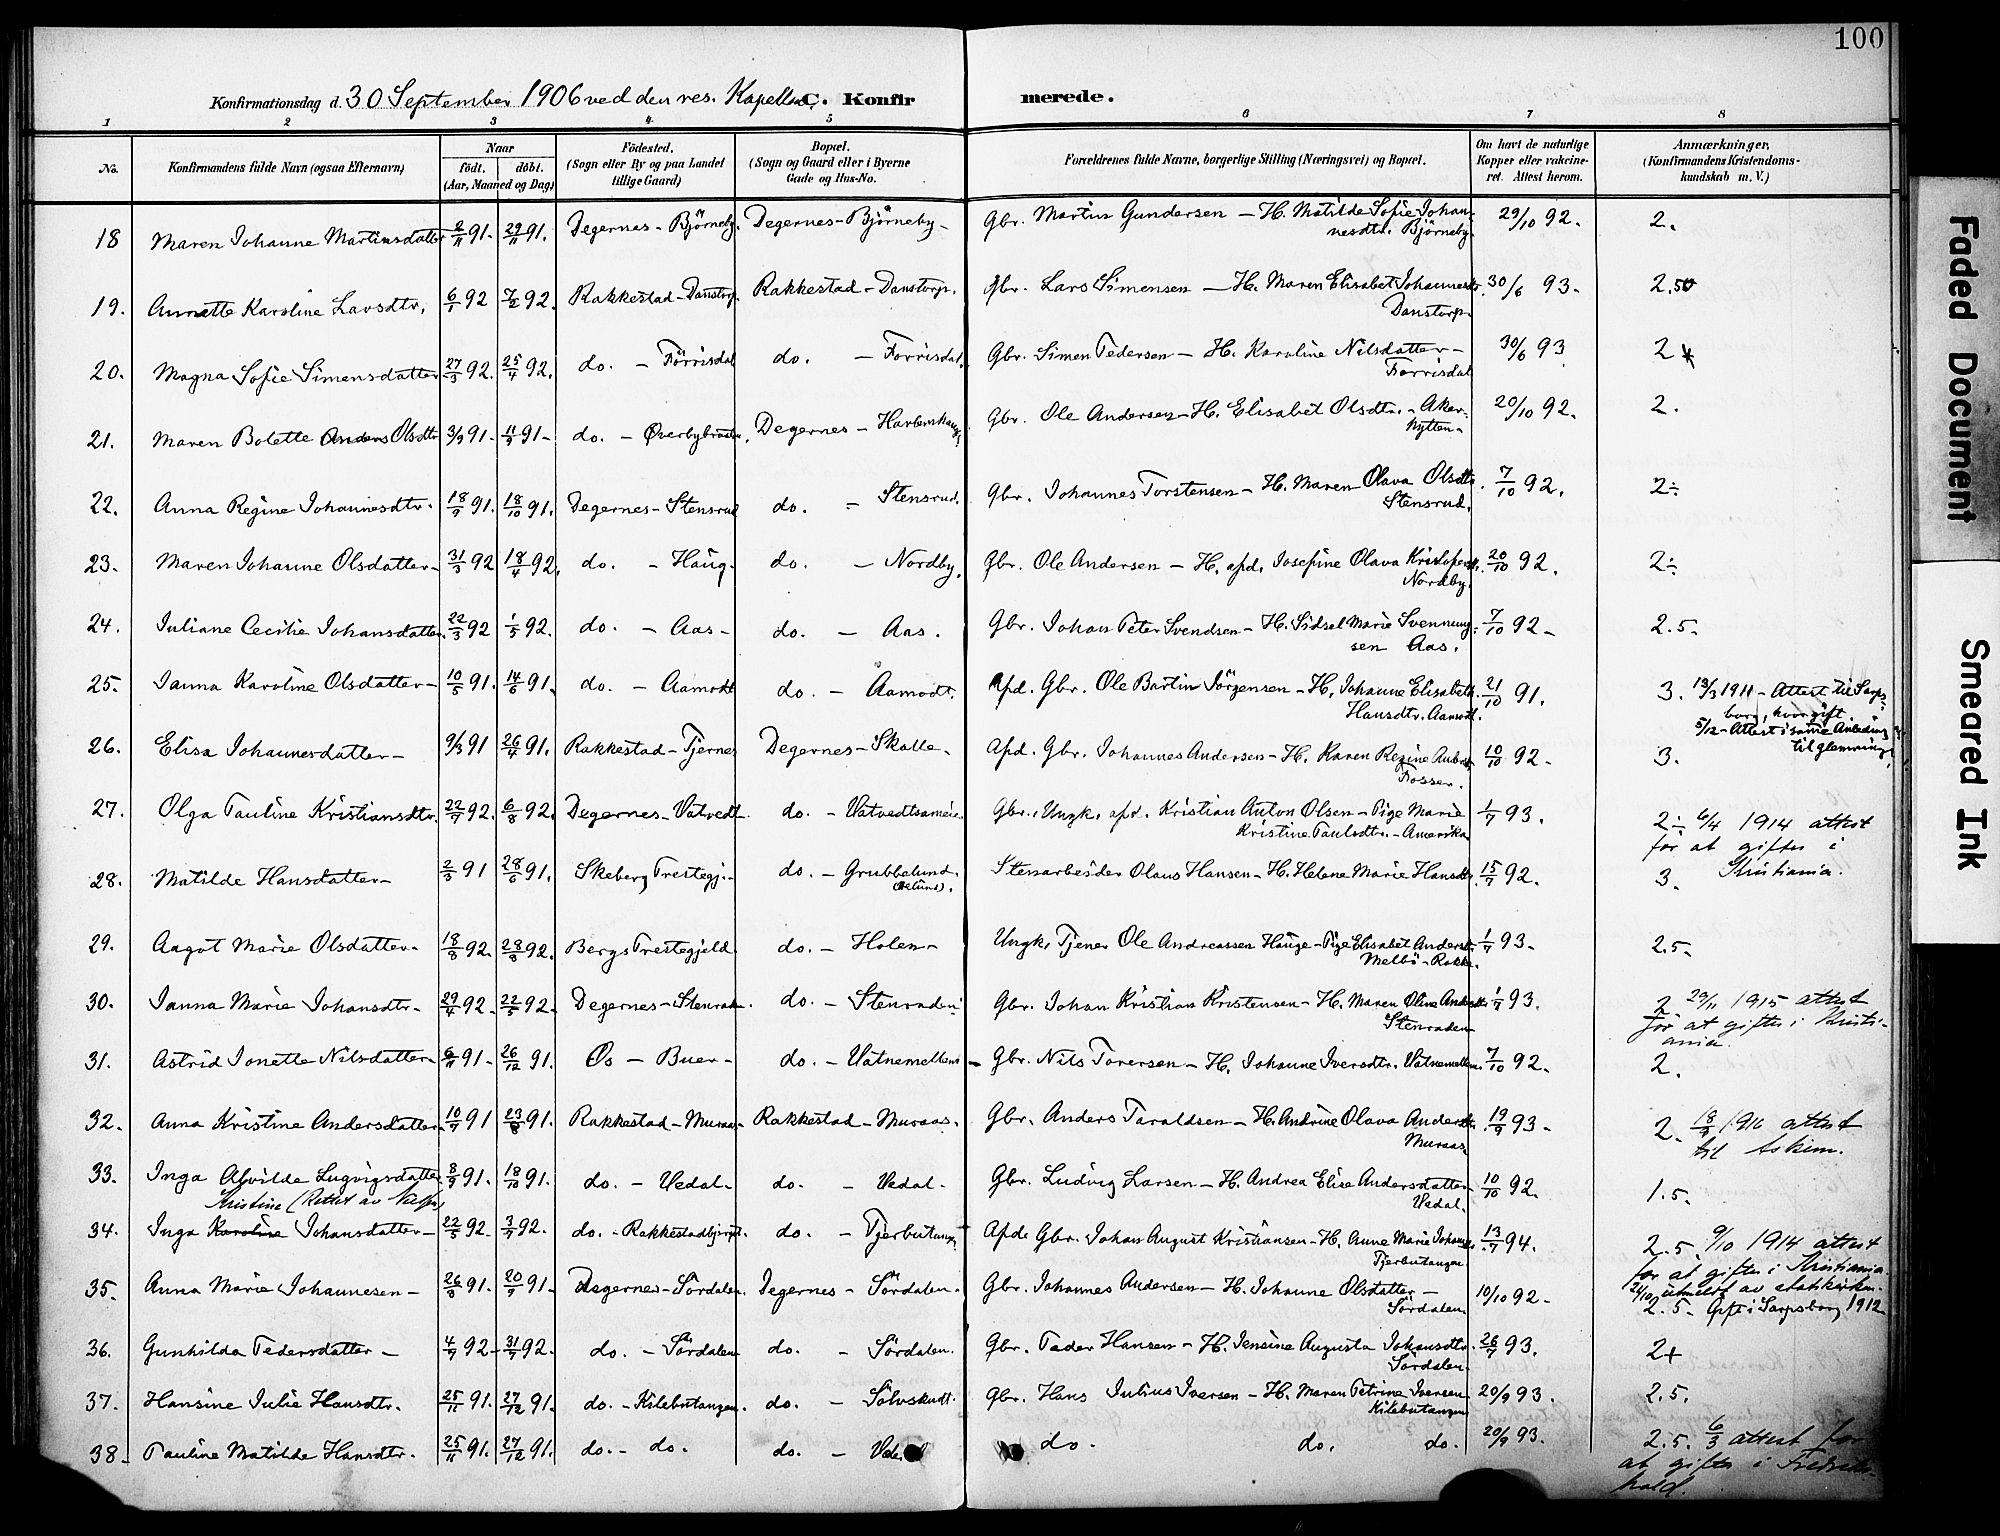 100
Konfirmationsdag d. 30 September 1906 ved den res. Kapellan. C. Konfirmerede.
1 2 3 4. 5 6 7 8
No. Konfirmandens fulde Navn (ogsaa Efternavn) Naar født. døbt. (Aar, Maaned og Dag) Fødested. (Sogn eller By og paa Landet tillige Gaard) Bopæl. (Sogn og Gaard eller i Byerne Gade og Hus-No. Forældrenes fulde Navne, borgerlige Stilling (Næringsvei) og Bopæl. Om havt de naturlige Kopper eller vakcineret. Attest herom. Anmærkninger, (Konfirmandens Kristendomskundskab m. V.)
18 Maren Johanne Martinsdatter 2/11 91. 29/11 91. Degernes - Björneby. Degernes - Björneby - Gbr. Martin Gundersen - H. Matilde Sofie Johannesdtr. Björneby. 29/10 92. 2.
19. Annette Karoline Larsdtr. 6/1 92 7/2 92. Rakkestad - Danstorp. Rakkestad - Danstorp. Gbr. Lars Simensen - H. Maren Elisabet Johannesdtr. Danstorp. 30/6 93. 2.5
20. Magna Sofie Simensdatter 27/3 92. 25/4 92. do. - Förrisdal do. - Forrisdal. Gbr. Simen Pedersen - H. Karoline Nilsdatter - Förrisdal 30/6 93 2
21. Maren Bolette Anders Olsdtr 3/9 91 - 11/9 91 - do. - Øverbybraaten. Degernes - Gbr. Ole Andersen - H. Elisabet Olsdtr. - Aker. Nytten - 20/10 92. 2.
22. Anna Regine Johannesdtr. 18/9 91. 18/10 91. Degernes - Stensrud do. - Stensrud. Gbr. Johannes Torstensen - H. Maren Olava Olsdtr. Stensrud. 7/10 92. 2÷
23. Maren Johanne Olsdatter - 31/3 92 18/4 92. do. - Haug. do. - Nordby. Gbr. Ole Andersen - H. afd. Josefine Olava Kristofersdtr. Nordby. 20/10 92. 2÷
24. Juliane Cecilie Johansdatter. 22/3 92 1/5 92. do. - Aas - do. - Aas. Gbr. Johan Peter Svendsen - H. Sidsel Marie Svenningsen Aas. 7/10 92 - 2.5.
25. Janna Karoline Olsdatter - 10/5 91. 14/6 91. do. - Aamodt do. - Aamodt. Afd. Gbr. Ole Bartin Jörgensen - H. Johanne Elisabeth Hansdtr. Aamodt. 21/10 91. 3. 13/3 1911 - Attest til Sarpsborg, hvor gift 5/12 - Attest i samme Anledning til Glemminge
26. Elisa Johannesdatter - 9/3 91 26/4 91. Rakkestad - Tjernes Degernes - Skalle - Afd. Gbr. Johannes Andersen - H. Karen Regine Fosser. 10/10 92 - 3.
27. Olga Pauline Kristiansdtr. 22/7 92. 6/8 92. Degernes - Vatvedt. do. - Vatvedtsameie. Gbr. Ungk. afd. Kristian Anton Olsen - Pige Marie Kristine Paulsdtr. - Amerika 1/7 93. 2÷ 6/4 1914 attest for at giftes i Kristiania.
28. Matilde Hansdatter - 2/3 91 28/6 91. Skeberg Prestegj. - do. - Grubbelund. Stenarbeider Olaus Hansen - H. Helene Marie Hansdtr. 15/7 92. 3.
29. Aagot Marie Olsdatter. 18/8 92. 28/8 92. Bergs Prestegjeld. do. - Holen - Ungk. Tjener Ole Andreassen Hauge - Pige Elisabet Andersdtr. Melbö - Rakke. 1/7 93 - 2.5.
30. Janna Marie Johansdtr. 29/4 92. 22/5 92. Degernes - Stenraden. do. - Stenraden. Gbr. Johan Kristian Kristensen - H. Maren Oline Andersdtr. Stenraden 1/7 93. 2. 29/11 1915 attest for at giftes i Kristiania.
31. Astrid Jonette Nilsdatter - 6/11 91 - 26/12 91. Øs - Buer - do. - Vatnemellem - Gbr. Nils Torersen - H. Johanne Iversdtr. Vatnemellem. 7/10 92. 2.
32. Anna Kristine Andersdatter. 10/7 91 23/8 91. Rakkestad - Muraas. Rakkestad - Muraas. Gbr. Anders Taraldsen - H. Andrine Olava Andersdtr. Muraas. 19/9 93 - 2. 18/9 1916 attest til Askim.
33. Inga Alvilde Lugvigsdatter 8/9 91. 18/10 91. do. - Vedal - do. - Vedal - Gbr. Ludvig Larsen - H. Andrea Elise Andersdatter Vedal. 10/10 92. 1.5.
Kristine (Rettet av
34. Inga Karoline Johansdatter - 22/5 92. 3/7 92. do. - Rakkestadbjerget. do. - Tjerbutangen Afd. Gbr. Johan August Kristiansen - H. Anne Marie Tjerbutangen 13/7 94. 2.5. 9/10 1914 attest for at giftes i Kristiania. 24/10 utmeldt av statskirken.
35. Anna Marie Johannesen - 26/8 91. 20/9 91 - Degernes - Sördalen. Degernes - Sördalen. Gbr. Johannes Andersen - H. Johanne Olsdatter - Sördalen 10/10 92 - 2.5 - Gift i Sarpsborg 1912
36. Gunhilda Pedersdatter - 4/7 92 - 31/7 92. do. - Sördalen do. - Sördalen. Gbr. Peder Hansen - H. Jensine Augusta Johansdtr. Sördalen. 26/7 93. 2+
37. Hansine Julie Hansdtr. 25/11 91. 27/12 91. do. - Kilebutangen. do. - Gbr. Hans Julius Iversen - H. Maren Petrine Iversen Kilebutangen 20/9 93. 2.5.
38. Pauline Matilde Hansdtr. 25/11 91. 27/12 91. do. - do. do. - do. do. do. 20/9 93. 2.5. 6/3 attest for at giftes i Fredrikshald.
Faded Document
Smeared Ink